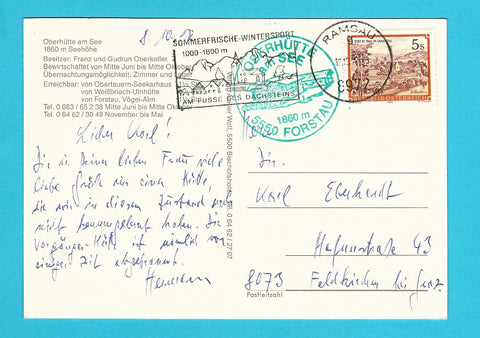 Oberhütte am See
1860 m Seehöhe
Besitzer: Franz und Gudrun Oberkofler.
Bewirtschaftet von Mitte Juni bis Mitte Oktober
Übernachtungsmöglichkeit: Zimmer und Lager
Erreichbar: von Obertauern-Seekarhaus
von Weißpriach-Ulnhütte
von Forstau, Vögei-Alm
Tel. 0 663 / 65 2 38 Mitte Juni bis Mitte Oktober
Tel. 0 64 62 / 30 49 November bis Mai
SOMMERFRISCHE-WINTERSPORT
1000-1800 m
AM FUSSE DES DACHSTEINS
OBERHÜTTE
am SEE
1860 m
5550 FORSTAU
RAMSAU
8972
5s
REPUBLIK ÖSTERREICH
Wolf, 5500 Bischofshofen, Tel. 0 64 62 / 27 07
Lieber Karl!
Dir u. Deiner lieben Frau viele
liebe Grüße aus einer Hütte,
die wir in diesem Zustand noch
nicht kennengelernt haben. Die
Vorgänger-Hütte ist nämlich vor
einiger Zeit abgebrannt.
Hermann
Hrn.
Karl Eberhardt
Hafnerstraße 43
8073 Feldkirchen bei Graz
Postleitzahl